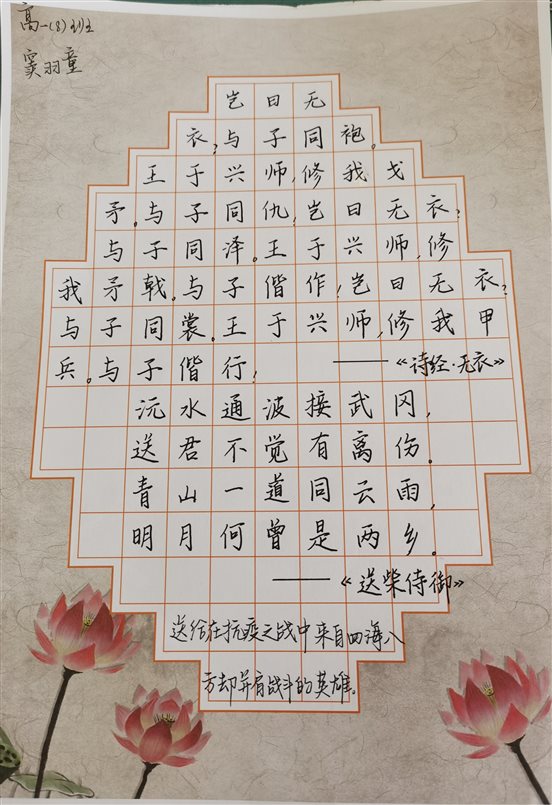 高一(8)班
窦羽童
岂曰无
衣?与子同袍。
王于兴师,修我戈
矛。与子同仇!岂曰无衣?
与子同泽。王于兴师,修
我矛戟。与子偕作!岂曰无衣?
与子同裳。王于兴师,修我甲
兵。与子偕行!——《诗经·无衣》
沅水通波接武冈,
送君不觉有离伤。
青山一道同云雨,
明月何曾是两乡。
——《送柴侍御》
送给在抗疫之战中来自四海八
方却并肩战斗的英雄。